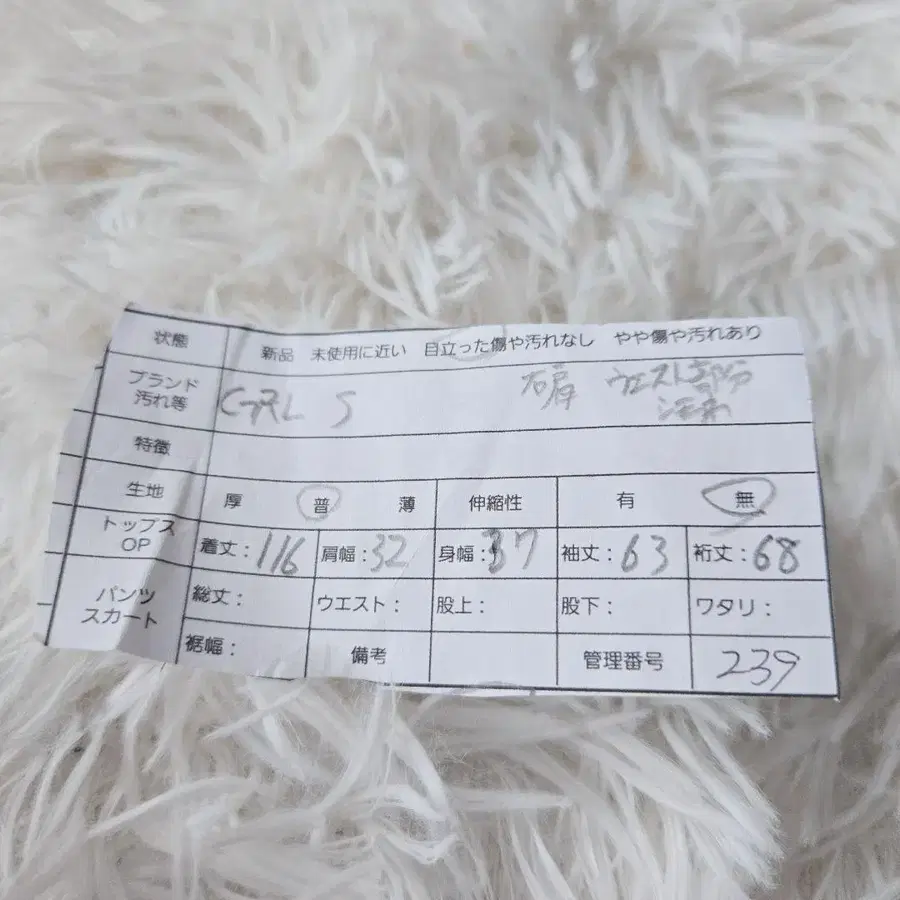 状態 新品 未使用に近い 目立った傷や汚れなし やや傷や汚れあり
ブランド 汚れ等 GRL S 右肩 ウエスト部分
特徴
生地 厚 普 薄 伸縮性 有 無
トップス OP 着丈：116 肩幅：32 身幅：37 袖丈：63 裄丈：68
パンツ スカート 総丈： ウエスト： 股上： 股下： ワタリ：
裾幅： 備考 管理番号 239